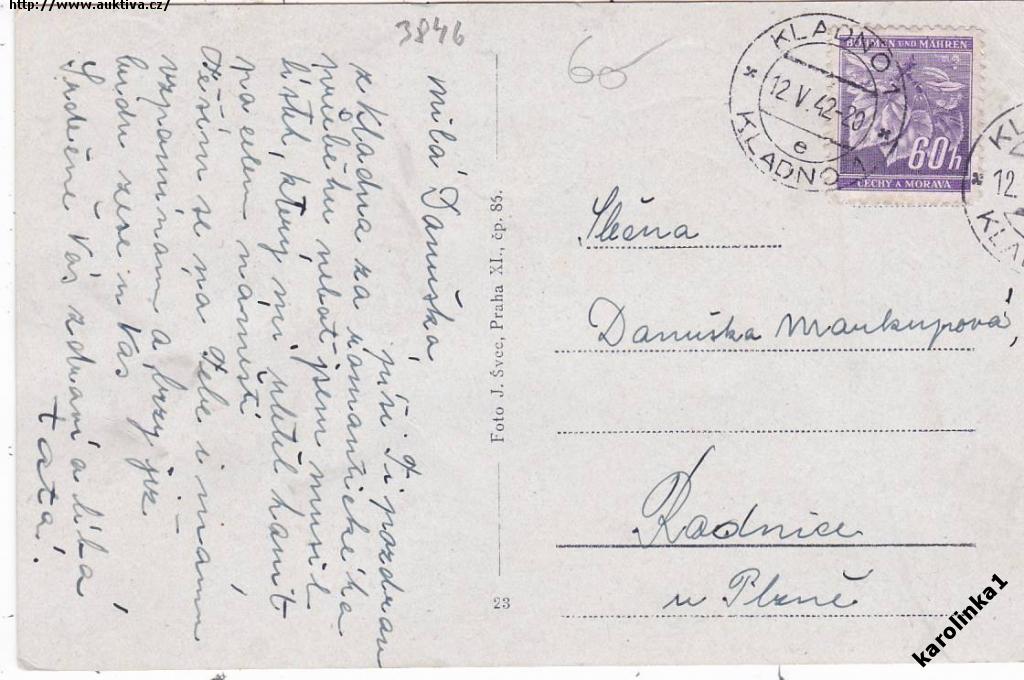 http://www.auktiva.cz/
3846
60
KLADNO 1
12. V. 42-20
e
KLADNO 1
BÖHMEN UND MÄHREN
60h
ČECHY A MORAVA
KLA
12
KLA
milá Danuška
píši Ti pozdrav
z Kladna za romantického
průběhu neboť jsem musil
lístek, který mi uletěl honit
po celém náměstí
Těším se na Tebe i mamu
vzpomínám a brzy již
budu zase u Vás
Srdečně Vás zdraví a líbá
táta!
Foto J. Švec, Praha XI., čp. 85.
23
Slečna
Danuška Markupová
Radnice
u Plzně
karolinka1